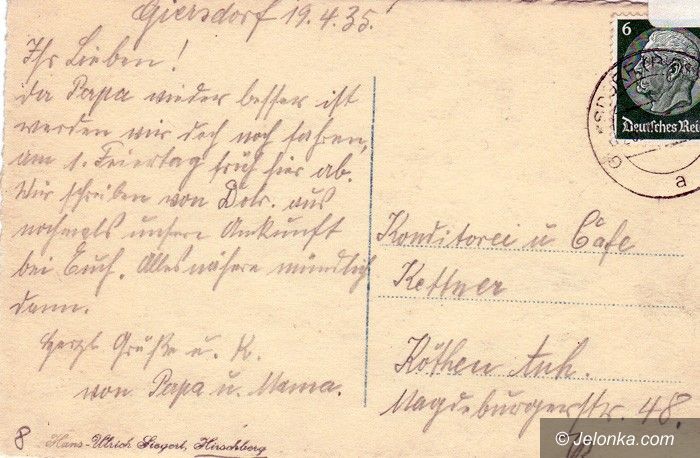 Giersdorf 19.4.35.
Ihr Lieben!
Da Papa wieder besser ist
werden wir doch noch fahren,
am 1. Feiertag früh hier ab.
Wir schreiben von Dolr. aus
nochmals unsere Ankunft
bei Euch. Alles nähere mündlich
dann.
Herzl Grüße u. K.
von Papa u. Mama.
8 Hans-Ulrich Siegert, Hirschberg
6
Deutsches Rei
a
Konditorei u Cafe
Kettner
Köthen Anh.
Magdeburgerstr. 48.
© Jelonka.com